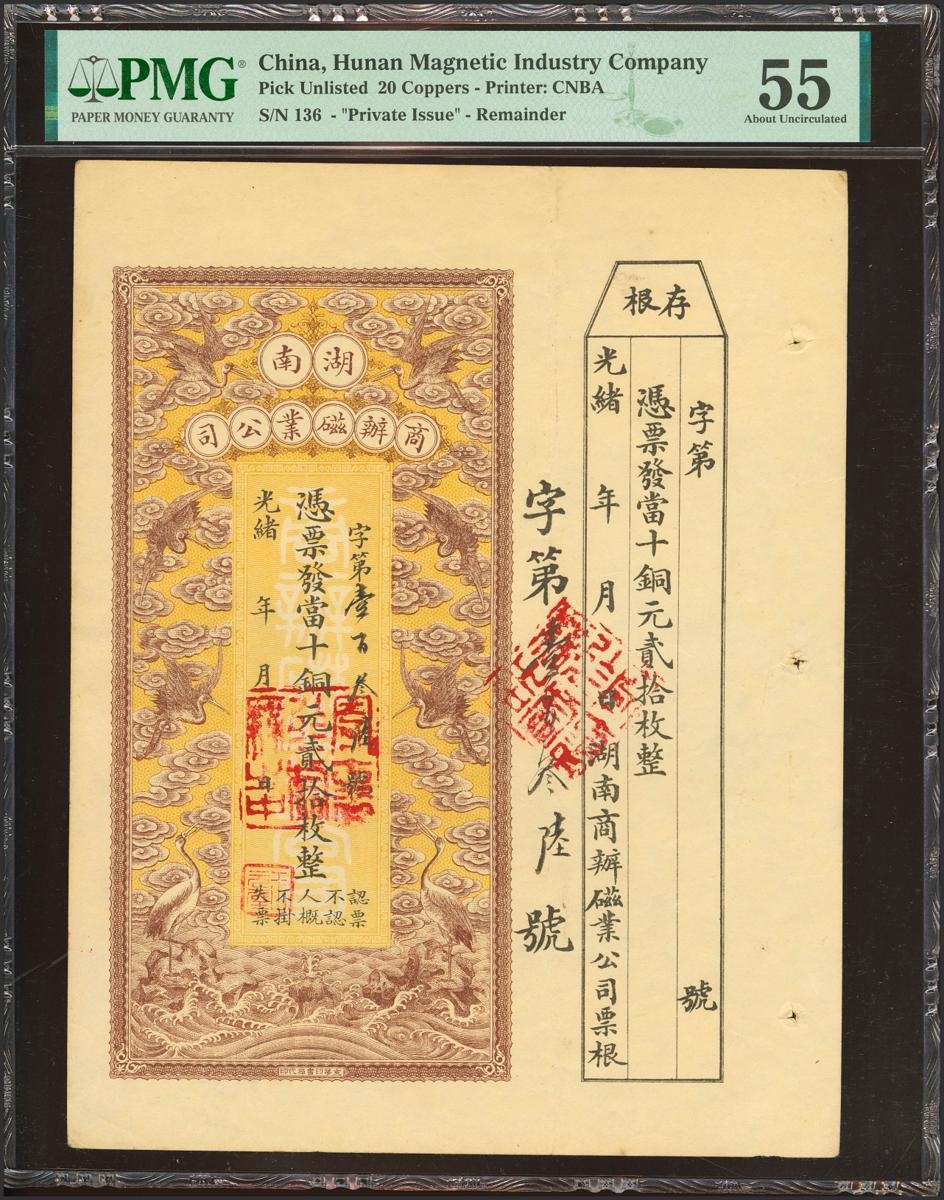 PMG®
PAPER MONEY GUARANTY
China, Hunan Magnetic Industry Company
Pick Unlisted 20 Coppers - Printer: CNBA
S/N 136 - "Private Issue" - Remainder
55
About Uncirculated
存根
字第 號
憑票發當十銅元貳拾枚整
光緒 年 月 日 湖南商辦磁業公司票根
字第壹百叁陸號
湖南
商辦磁業公司
字第壹百叁陸號
憑票發當十銅元貳拾枚整
光緒 年 月 日
認票
不認
人概
不掛
失票